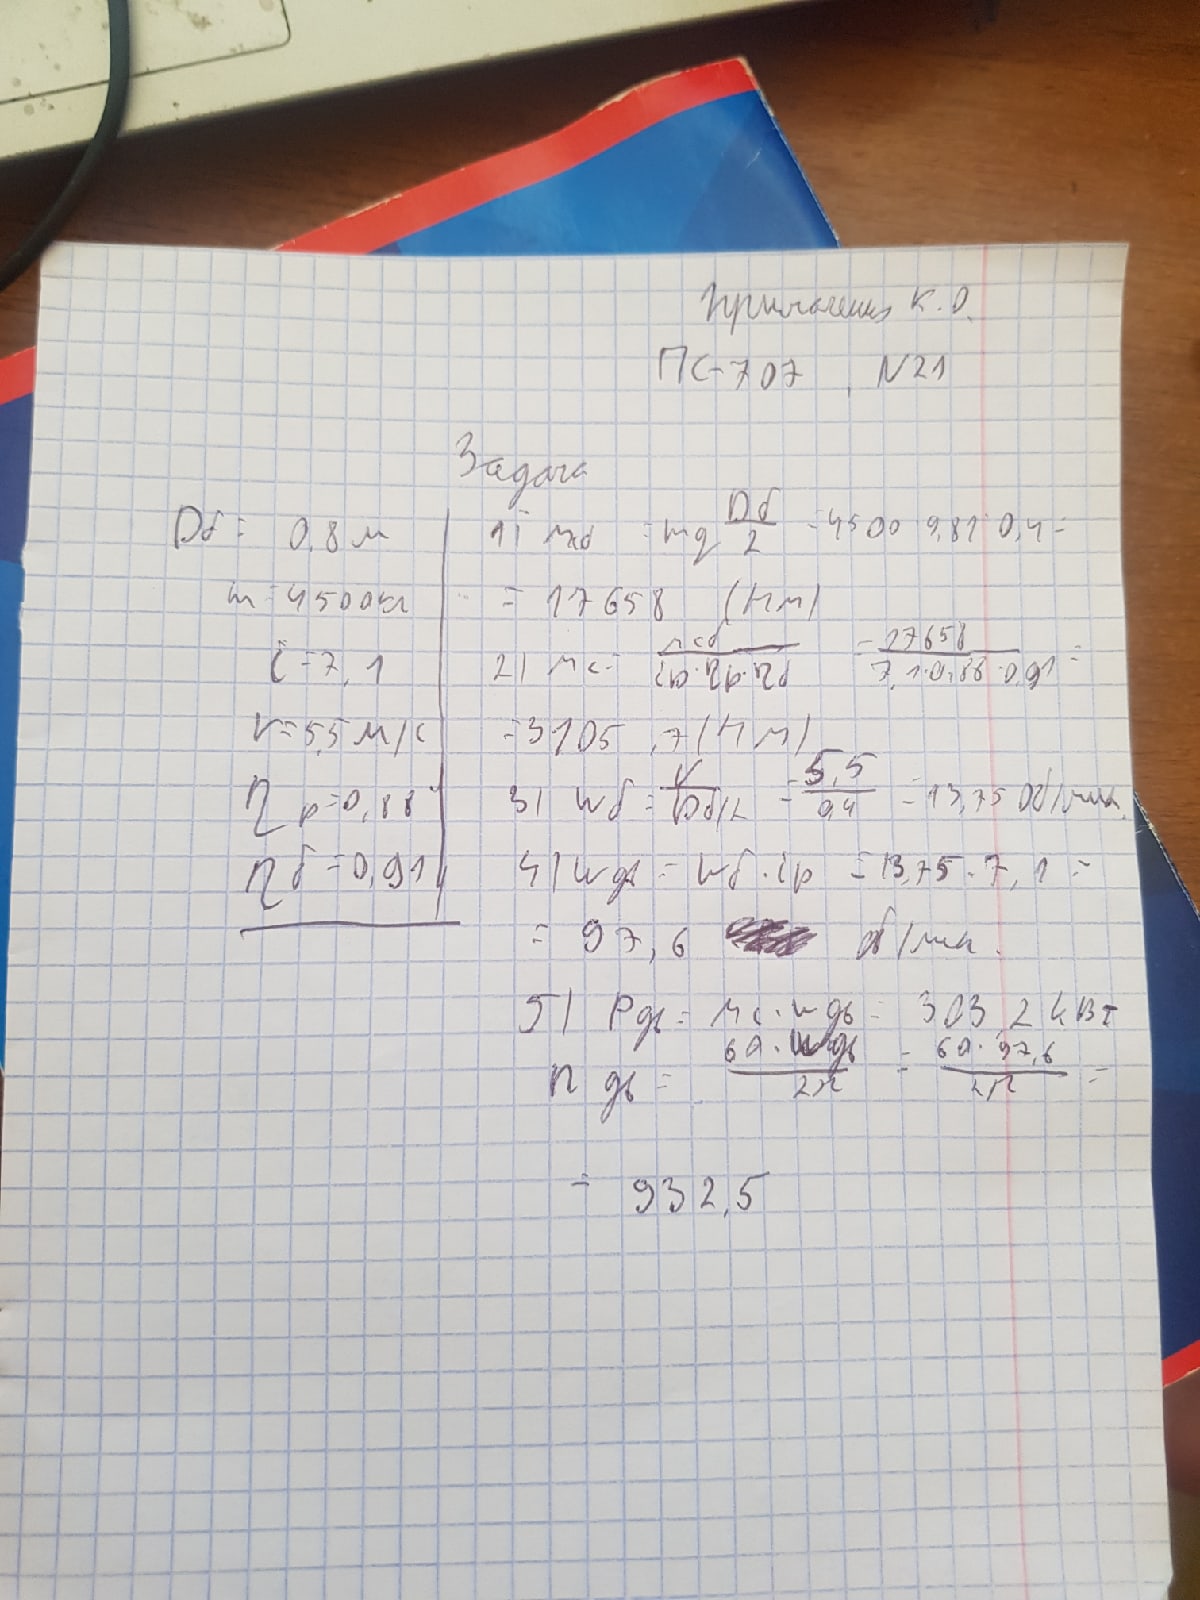 К.О.
ПС-707, N21
Задача
Dб = 0,8 м
m = 4500кг
i = 7,1
V = 5,5 м/с
ηр = 0,88
ηб = 0,91
1) Мсб = mg Dб/2 = 4500 9,81 0,4 =
= 17658 (Нм)
2) Мс = Мсб/iр·ηр·ηб = 17658/7,1·0,88·0,91 =
= 3105,7 (Нм)
3) Wб = V/(Dб/2 = 5,5/0,4 = 13,75 Об/мин.
4) Wдв = Wб · iр = 13,75 · 7,1 =
= 97,6 об/мин.
5) Рдв = Мс · Wдв = 303,2 кВт
n дв = 60 · Wдв/2π = 60 · 97,6/2π =
= 932,5